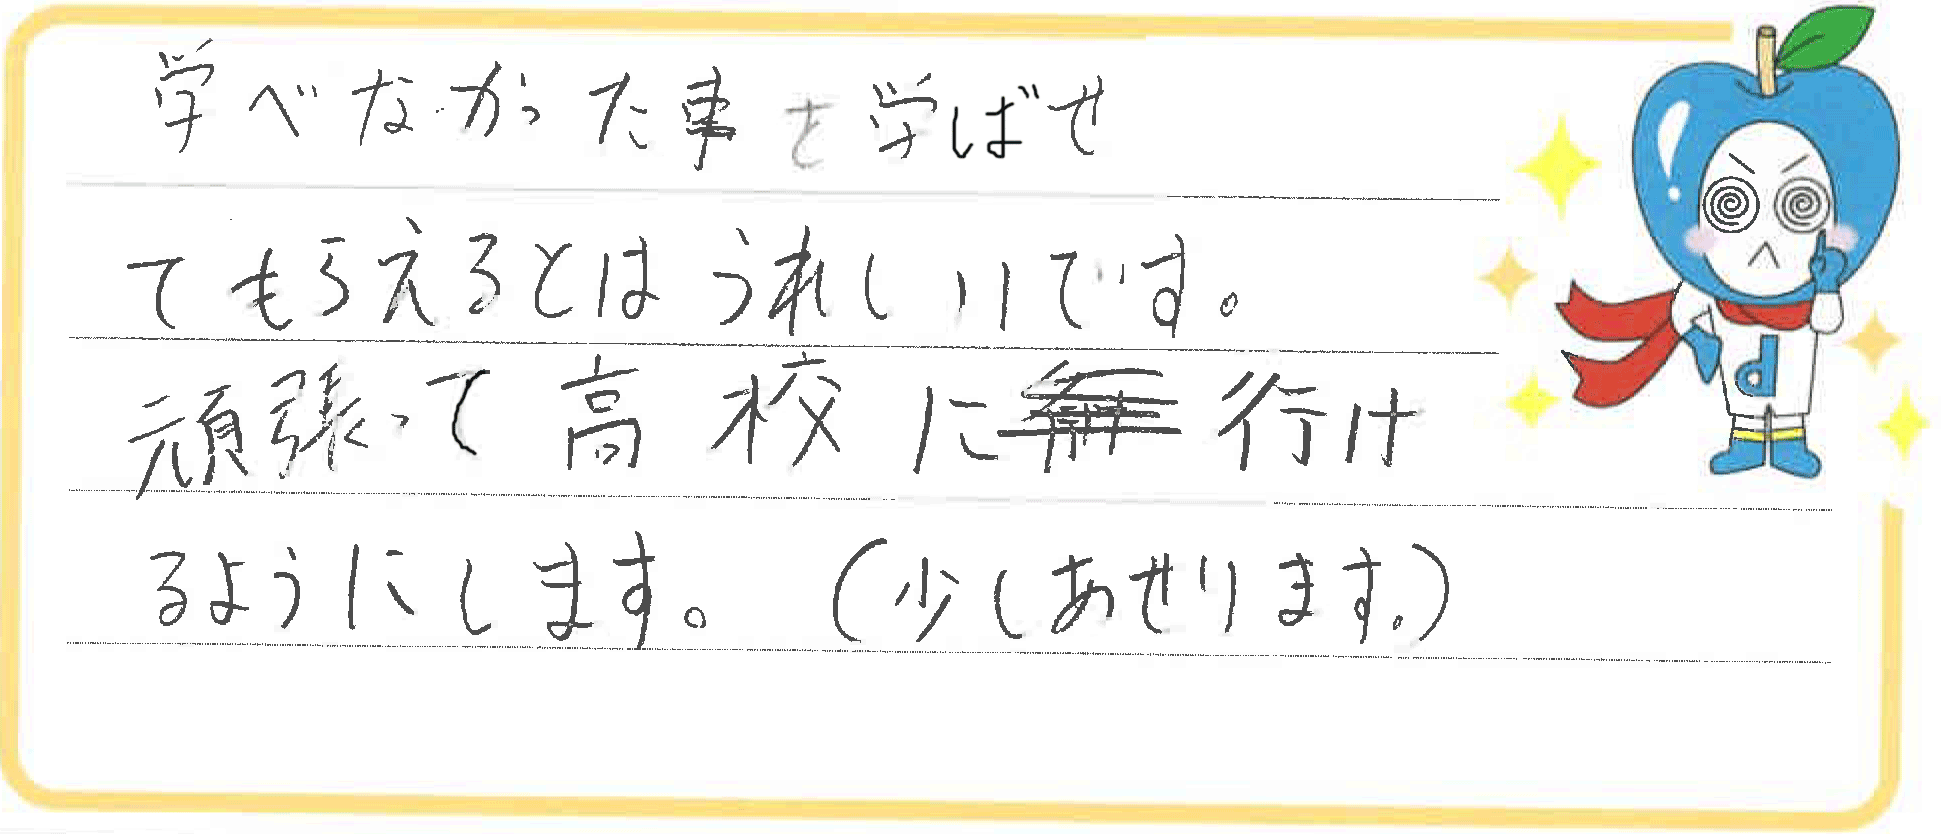 学べなかった事を学ばせ
てもらえるとはうれしいです。
頑張って高校に行け
るようにします。(少しあせります。)
d